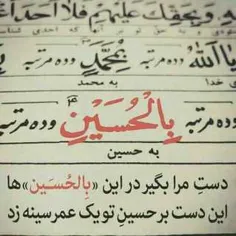 وَبِحَقِّكَ عَلَيْهِمْ فَلا اَحَدَ
يا اَللّٰهُ وده مرتبه بِمُحَمَّدٍ وده مرتبه
خدا به محمد
وده مرتبه بِالْحُسَيْنِ وده مرتبه
به حسین
دستِ مرا بگیر در این «بِالحُسَین» ها
این دست بر حسینِ تو یک عمر سینه زد